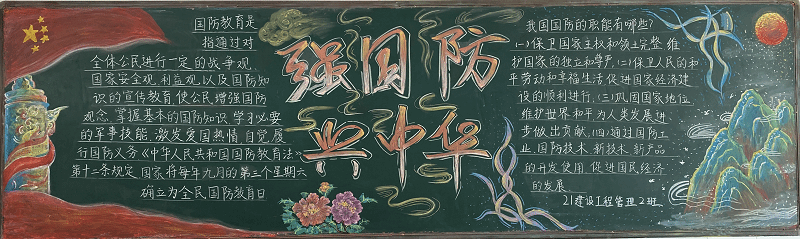 国防教育是
指通过对
全体公民进行一定的战争观
国家安全观,利益观以及国防知
识的宣传教育,使公民增强国防
观念,掌握基本的国防知识,学习必要
的军事技能,激发爱国热情,自觉履
行国防义务《中华人民共和国国防教育法》
第十二条规定,国家将每年九月的第三个星期六
确立为全民国防教育日
强国防
兴中华
我国国防的职能有哪些?
(一)保卫国家主权和领土完整,维
护国家的独立和尊严,(二)保卫人民的和
平劳动和幸福生活,促进国家经济建
设的顺利进行,(三)巩固国家地位,
维护世界和平,为人类发展进
步做出贡献,(四)通过国防工
业,国防技术,新技术,新产品
的开发使用,促进国民经济
的发展
21建设工程管理2班